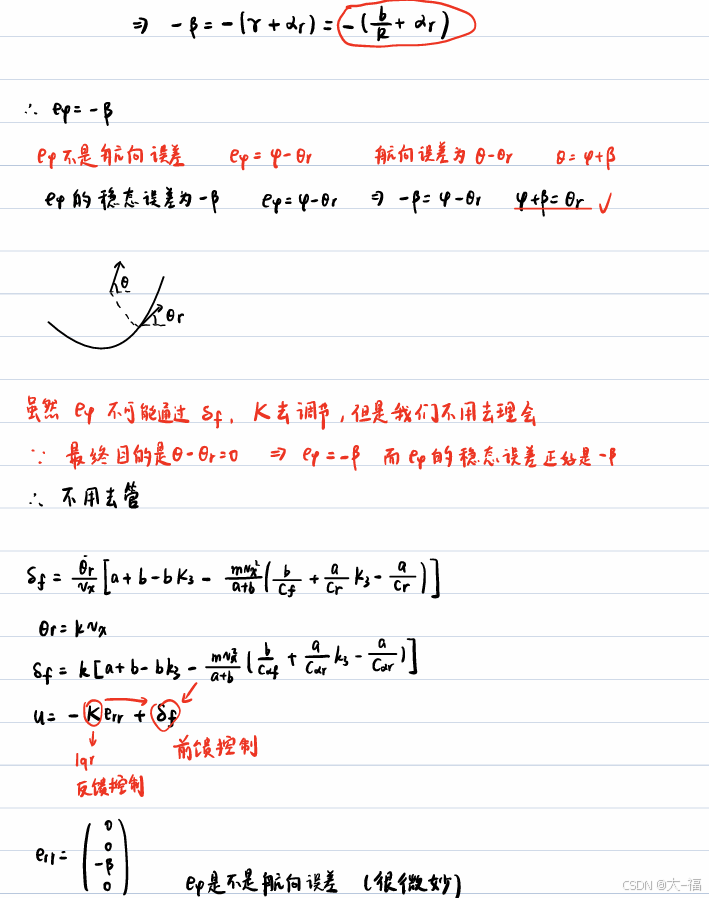 ⇒ -β = -(γ + αr) = -(b/R + αr)
∴ eφ = -β
eφ不是航向误差 eφ = φ-θr 航向误差为θ-θr θ = φ+β
eφ的稳态误差为-β eφ = φ-θr ⇒ -β = φ-θr φ+β = θr ✓
θ
θr
虽然 eφ 不可能通过 δf, K去调节,但是我们不用去理会
∵ 最终目的是θ-θr=0 ⇒ eφ = -β 而eφ的稳态误差正好是-β
∴ 不用去管
δf = θ̇r/vx [a + b - bk3 - mvx²/(a+b) (b/Cf + a/Cr k3 - a/Cr)]
θr = kvx
δf = k[a + b - bk3 - mvx²/(a+b) (b/Cαf + a/Cαr k3 - a/Cαr)]
u = -K err + δf
前馈控制
lqr
反馈控制
err = (0 0 -β 0)
eφ是不是航向误差 (很微妙)
CSDN @大-福